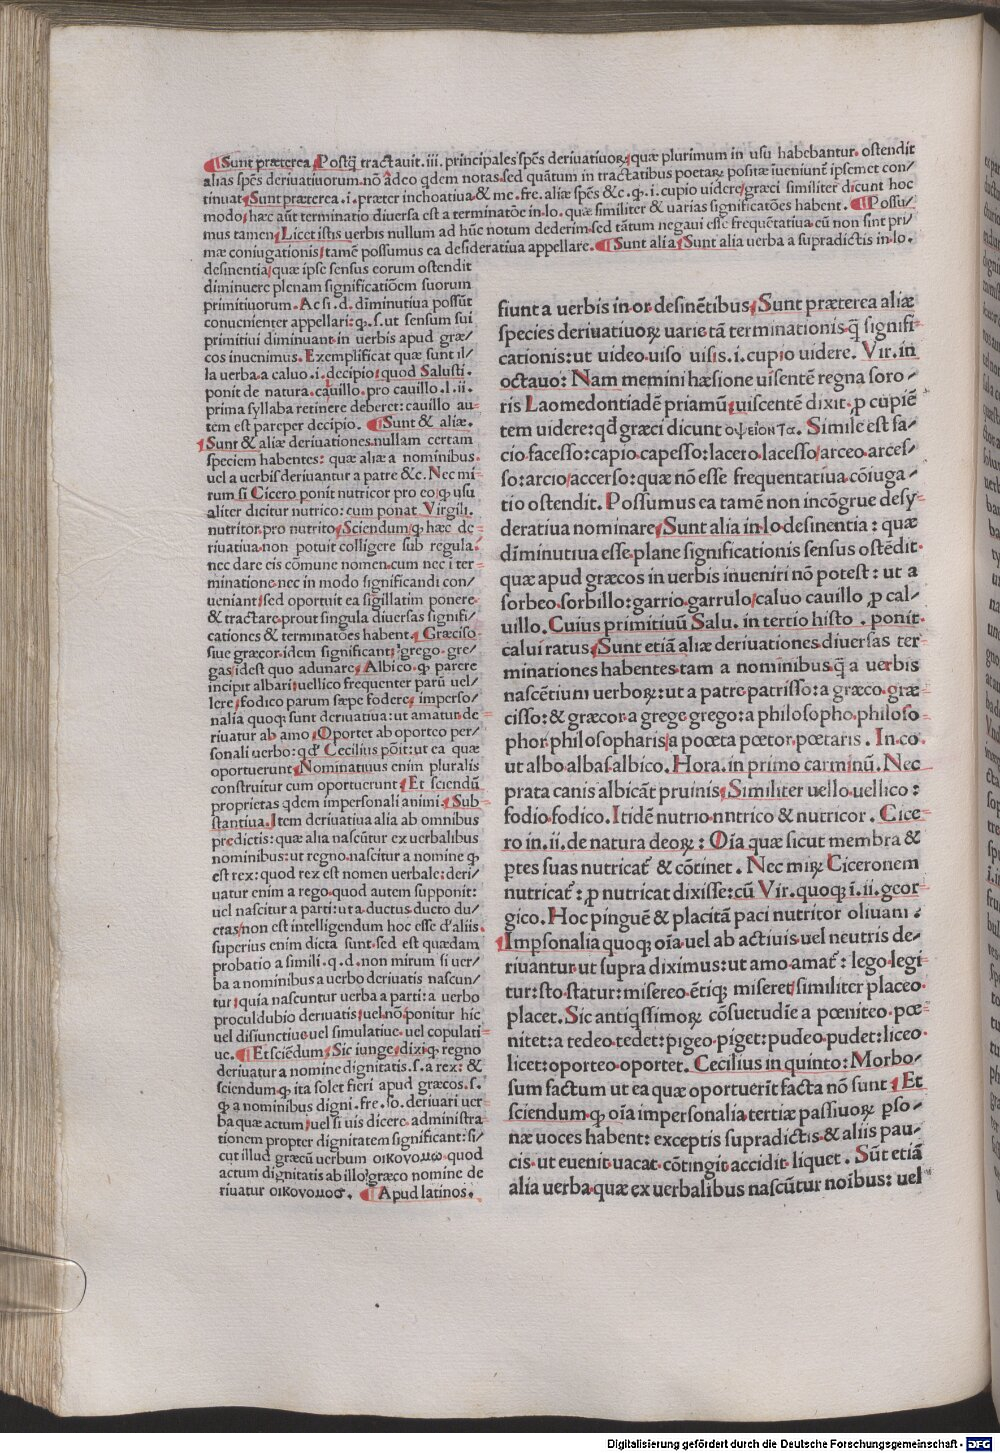 ¶ Sunt præterea Postq̃ tractauit .iii. principales sp̃es deriuatiuoꝝ quæ plurimum in usu habebantur. ostendit
alias sp̃es deriuatiuorum. nõ adeo qdem notas. sed quãtum in tractatibus poetaꝝ positæ iueniunt̃ ipsemet con/
tinuat Sunt præterea .i. præter inchoatiua & me. fre. aliæ sp̃es &c. ꝙ .i. cupio uidere græci similiter dicunt hoc
modo/ hæc aũt terminatio diuersa est a terminatõe in .lo. quæ similiter & uarias significatões habent. ¶ Possu/
mus tamen Licet istis uerbis nullum ad hũc notum dederim. sed tãtum negaui esse frequẽtatiua. cũ non sint pri/
mæ coniugationis/ tamẽ possumus ea desideratiua appellare. ¶ Sunt alia Sunt alia uerba a supradictis in .lo.
desinentia/ quæ ipse sensus eorum ostendit
diminuere plenam significatiõem suorum
primitiuorum. Ac si .d. dĩminutiua possũt
conuenienter appellari: ꝙ .s. ut sensum sui
primitiui diminuant. in uerbis apud græ/
cos inuenimus. Exemplificat quæ sunt il/
la uerba. a caluo .i. decipio quod Salusti.
ponit de natura. cauillo. pro cauillo .l. ii.
prima syllaba retinere deberet: cauillo au=
tem est pareper decipio. ¶ Sunt & aliæ.
Sunt & aliæ deriuationes. nullam certam
speciem habentes: quæ aliæ a nominibus.
uel a uerbis deriuantur a patre &c. Nec mi=
rum si Cicero ponit nutricor pro eo ꝙ usu
aliter dicitur nutrico: cum ponat Virgili.
nutritor. pro nutrito Sciendum ꝙ hæc de=
riuatiua. non potuit colligere sub regula.
nec dare eis cõmune nomen. cum nec i ter=
minatione. nec in modo significandi con/
ueniant/ sed oportuit ea sigillatim ponere.
& tractare. prout singula diuersas signifi/
cationes & terminatões habent Græcisso=
siue græcor. idem significant: grego. gre/
gas/ idest quo adunare Albico. ꝙ parere
incipit albari: uellico frequenter parũ uel/
lere/ fodico parum sæpe fodere/ imperso/
nalia quoq; sunt deriuatiua: ut amatur. de=
riuatur ab amo Oportet ab oporteo per/
sonali uerbo: qd̃ Cecilius põit: ut ea quæ
oportuerunt Nominatiuus enim pluralis
construitur cum oportuerunt Et sciendũ
proprietas qdem impersonali animi Sub=
stantiua. Item deriuatiua alia ab omnibus
predictis: quæ alia nascũtur ex uerbalibus
nominibus: ut regno. nascitur a nomine ꝙ
est rex: quod rex est nomen uerbale: deri/
uatur enim a rego. quod autem supponit:
uel nascitur a parti: ut a ductus. ducto du/
ctas/ non est intelligendum hoc esse d'aliis.
superius enim dicta sunt. sed est quædam
probatio a simili .q. d. non mirum si uer/
ba a nominibus a uerbo deriuatis nascun/
tur quia nascuntur uerba a parti: a uerbo
proculdubio deriuatis uel nõ ponitur hic
uel disiunctiue. uel simulatiue. uel copulati
ue. ¶ Et sciẽdum Sic iunge/ dixi ꝙ regno
deriuatur a nomine dignitatis .s. a rex: &
sciendum. ꝙ ita solet fieri apud græcos .s.
ꝙ a nominibus digni. fre. so. deriuari uer=
ba quæ actum uel si uis dicere. administra
tionem propter dignitatem significant: si/
cut illud græcũ uerbum οικονομω. quod
actum dignitatis ab illo græco nomine de
riuatur οικονομοσ. ¶ Apud latinos.
fiunt a uerbis in or desinẽtibus Sunt præterea aliæ
species deriuatiuoꝝ uarie tã terminationis q̃ signifi=
cationis: ut uideo. uiso uisis .i. cupio uidere. Vir. in
octauo: Nam memini hæsione uisentẽ regna soro/
ris Laomedontiadẽ priamũ uiscentẽ dixit. ꝓ cupiẽ
tem uidere: qd̃ græci dicunt οψειοντα. Simile est fa/
cio facesso: capio capesso: lacero lacesso/ arceo arces/
so: arcio/ accerso: quæ nõ esse frequentatiua cõiuga=
tio ostendit. Possumus ea tamẽ non incõgrue desy=
deratiua nominare Sunt alia in .lo. desinentia: quæ
diminutiua esse plane significationis sensus ostẽdit.
quæ apud græcos in uerbis inueniri nõ potest: ut a
sorbeo. sorbillo: garrio. garrulo/ caluo cauillo ꝓ cal/
uillo. Cuius primitiuũ Salu. in tertio histo. ponit.
calui ratus Sunt etiã aliæ deriuationes diuersas ter=
minationes habentes tam a nominibus q̃ a uerbis
nascẽtium uerboꝝ: ut a patre patrisso: a græco. græ
cisso: & græcor. a grege grego: a philosopho. philoso
phor. philosopharis/ a poeta poetor. poetaris. In .co.
ut albo. albas. albico. Hora. in primo carminũ. Nec
prata canis albicãt pruinis Similiter uello. uellico:
fodio. fodico. Itidẽ nutrio. nntrico & nutricor. Cice=
ro in .ii. de natura deoꝝ: Oĩa quæ sicut membra &
ptes suas nutricat̃ & cõtinet. Nec miꝝ Ciceronem
nutricat̃: ꝓ nutricat dixisse: cũ Vir. quoq; ĩ .ii. geor=
gico. Hoc pinguẽ & placitã paci nutritor oliuam:
Impsonalia quoq; oĩa uel ab actiuis uel neutris de/
riuantur. ut supra diximus: ut amo. amat̃: lego legi
tur: sto. statur: misereo. ẽtiq; miseret/ similiter placeo.
placet. Sic antiqssimoꝝ cõsuetudĩe a pœniteo. pœ=
nitet: a tedeo. tedet: pigeo. piget: pudeo. pudet: liceo.
licet: oporteo. oportet. Cecilius in quinto: Morbo/
sum factum ut ea quæ oportuerĩt facta nõ sunt Et
sciendum. ꝙ oĩa impersonalia tertiæ passiuoꝝ pso=
næ uoces habent: exceptis supradictis. & aliis pau/
cis. ut euenit. uacat. cõtingit. accidit. liquet. Sũt etiã
alia uerba. quæ ex uerbalibus nascũtur noĩbus: uel
Digitalisierung gefördert durch die Deutsche Forschungsgemeinschaft - DFG